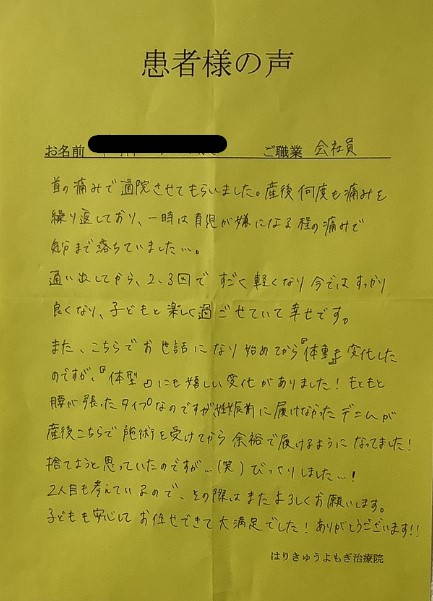 患者様の声
お名前 ご職業 会社員
首の痛みで通院させてもらいました。産後何度も痛みを
繰り返しており、一時は育児が嫌になる程の痛みで
気分まで落ちていました…。
通い出してから、2、3回ですごく軽くなり今ではすっかり
良くなり、子どもと楽しく過ごせていて幸せです。
また、こちらでお世話になり始めてから『体重』も変化した
のですが、『体型』にも嬉しい変化がありました！もともと
腰が張ったタイプなのですが妊娠前に履けなかったデニムが
産後こちらで施術を受けてから余裕で履けるようになってました！
捨てようと思っていたのですが…(笑)びっくりしました…！
2人目も考えているので、その際はまたよろしくお願いします。
子どもも安心してお任せできて大満足でした！ありがとうございます！！
はりきゅうよもぎ治療院